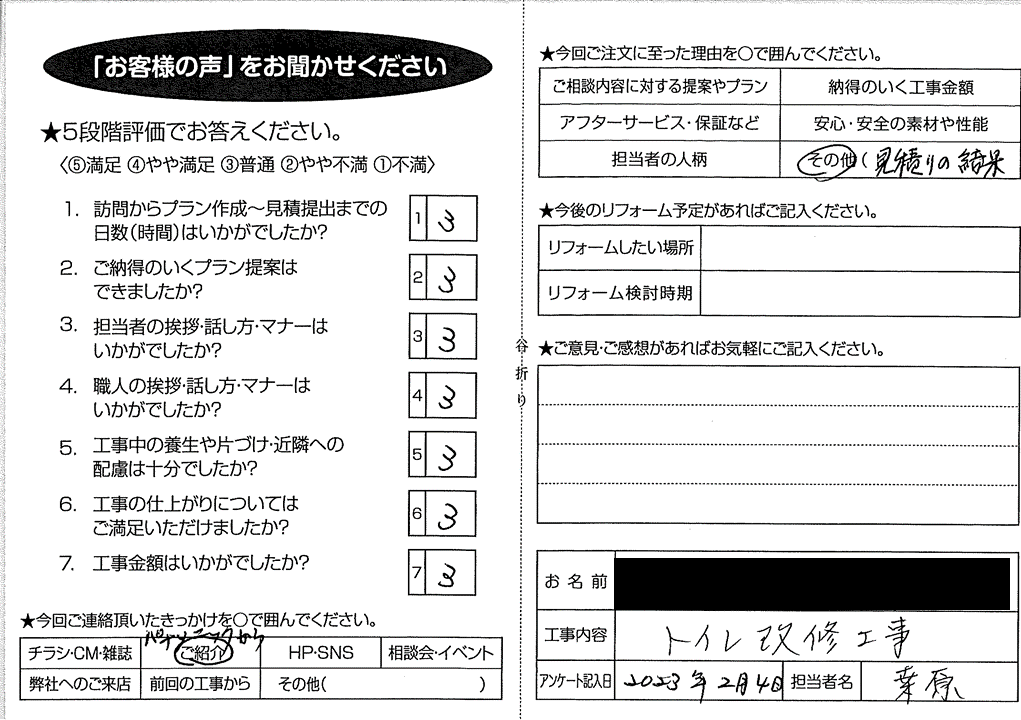 「お客様の声」をお聞かせください
★5段階評価でお答えください。
〈⑤満足 ④やや満足 ③普通 ②やや不満 ①不満〉
1. 訪問からプラン作成～見積提出までの
日数(時間)はいかがでしたか?
1 3
2. ご納得のいくプラン提案は
できましたか?
2 3
3. 担当者の挨拶・話し方・マナーは
いかがでしたか?
3 3
4. 職人の挨拶・話し方・マナーは
いかがでしたか?
4 3
5. 工事中の養生や片づけ・近隣への
配慮は十分でしたか?
5 3
6. 工事の仕上がりについては
ご満足いただけましたか?
6 3
7. 工事金額はいかがでしたか?
7 3
★今回ご連絡頂いたきっかけを○で囲んでください。
パナソニックから
チラシ・CM・雑誌 ご紹介 HP・SNS 相談会・イベント
弊社へのご来店 前回の工事から その他( )
谷折り
★今回ご注文に至った理由を○で囲んでください。
ご相談内容に対する提案やプラン 納得のいく工事金額
アフターサービス・保証など 安心・安全の素材や性能
担当者の人柄 その他(見積りの結果
★今後のリフォーム予定があればご記入ください。
リフォームしたい場所
リフォーム検討時期
★ご意見・ご感想があればお気軽にご記入ください。
お名前
工事内容 トイレ改修工事
アンケート記入日 2023年2月4日 担当者名 葉原